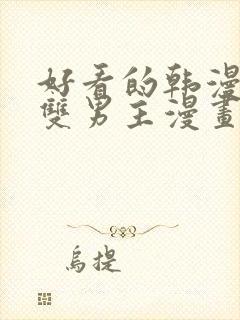 好看的韩漫
雙男主漫畫
烏提